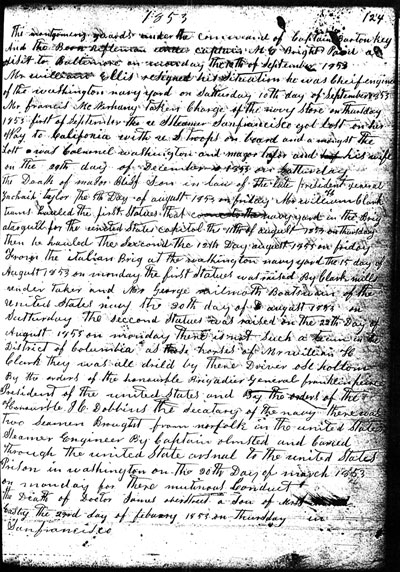 1853
124
The montgomery guards under the command of Captain Barton Key
And the Boon Rifleman under captain M G Bright Paid a
visit to Baltimore on monday the 12th of September 1853
Mr william Ellis resigned his situation he was Cheif engineer
of the washington navy yard on Saturday 10th day of September 1853
Mr francis Mc Nerhany taken Charge of the navy store on thursday
1853 first of September the u s Steamer Sanfrancisco got lost on his
Way to Califonia with u S troops on board and amongst the
Lost was Colounel washington and major taylor and his wife
on the day of December 1853 on Saturday
The Death of major Bliss Son in law of the late president general
Zachariah taylor the 5th Day of august 1853 on friday Mr william Clark
teams hauled the first Statues that navy yard in the Brig
for the united States capitol the 11th of august 1853 on thursday
then he hauled the Second the 12th Day august 1853 on friday
From the itubian Brig at the washington navy yard the 15 day of
August 1853 on monday the first Statues was raised By Clark mills
under taker and Mr George wilmoth Boatswain of the
united States navy the 20th day of august 1853 on
Satturday the second Statues was raised on the 22th Day of
August 1853 on monday there is not Such a team in the
District of Columbia as those horses of Mr william H
Clark they was all drild by there Driver
By the orders of the honourable Brigadier General franklin pierce
President of the united States and By the orders of the
Honourable J C Dobbins the Secatary of the navy there was
two Seamen Brought from norfolk in the united States
Steamer Engineer By Captain olmsted and Caried
through the united State arsnal to the united States
Prison in washington on the 20th Day of march 1853
on monday for there mutinous Conduct
the Death of Doctor James overstreet a Son of
the 23rd day of febuary 1853 on thursday in
Sanfrancisco